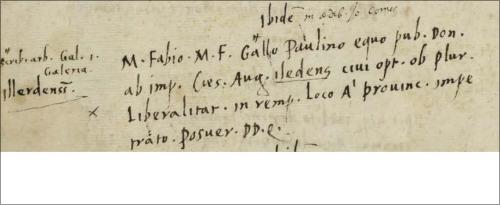 Ibidē in aedib. Io. Comes
scrib. arb. Gal. 1.
Galeria
illerdensi.
M. Fabio. M. F. Gallo Paulino equo pub. Don.
ab imp. Caes. Aug. iledens civi opt. ob plur.
x Liberalitat. in remp. Loco A' provinc. impe
trato. Posuer. DD. e.